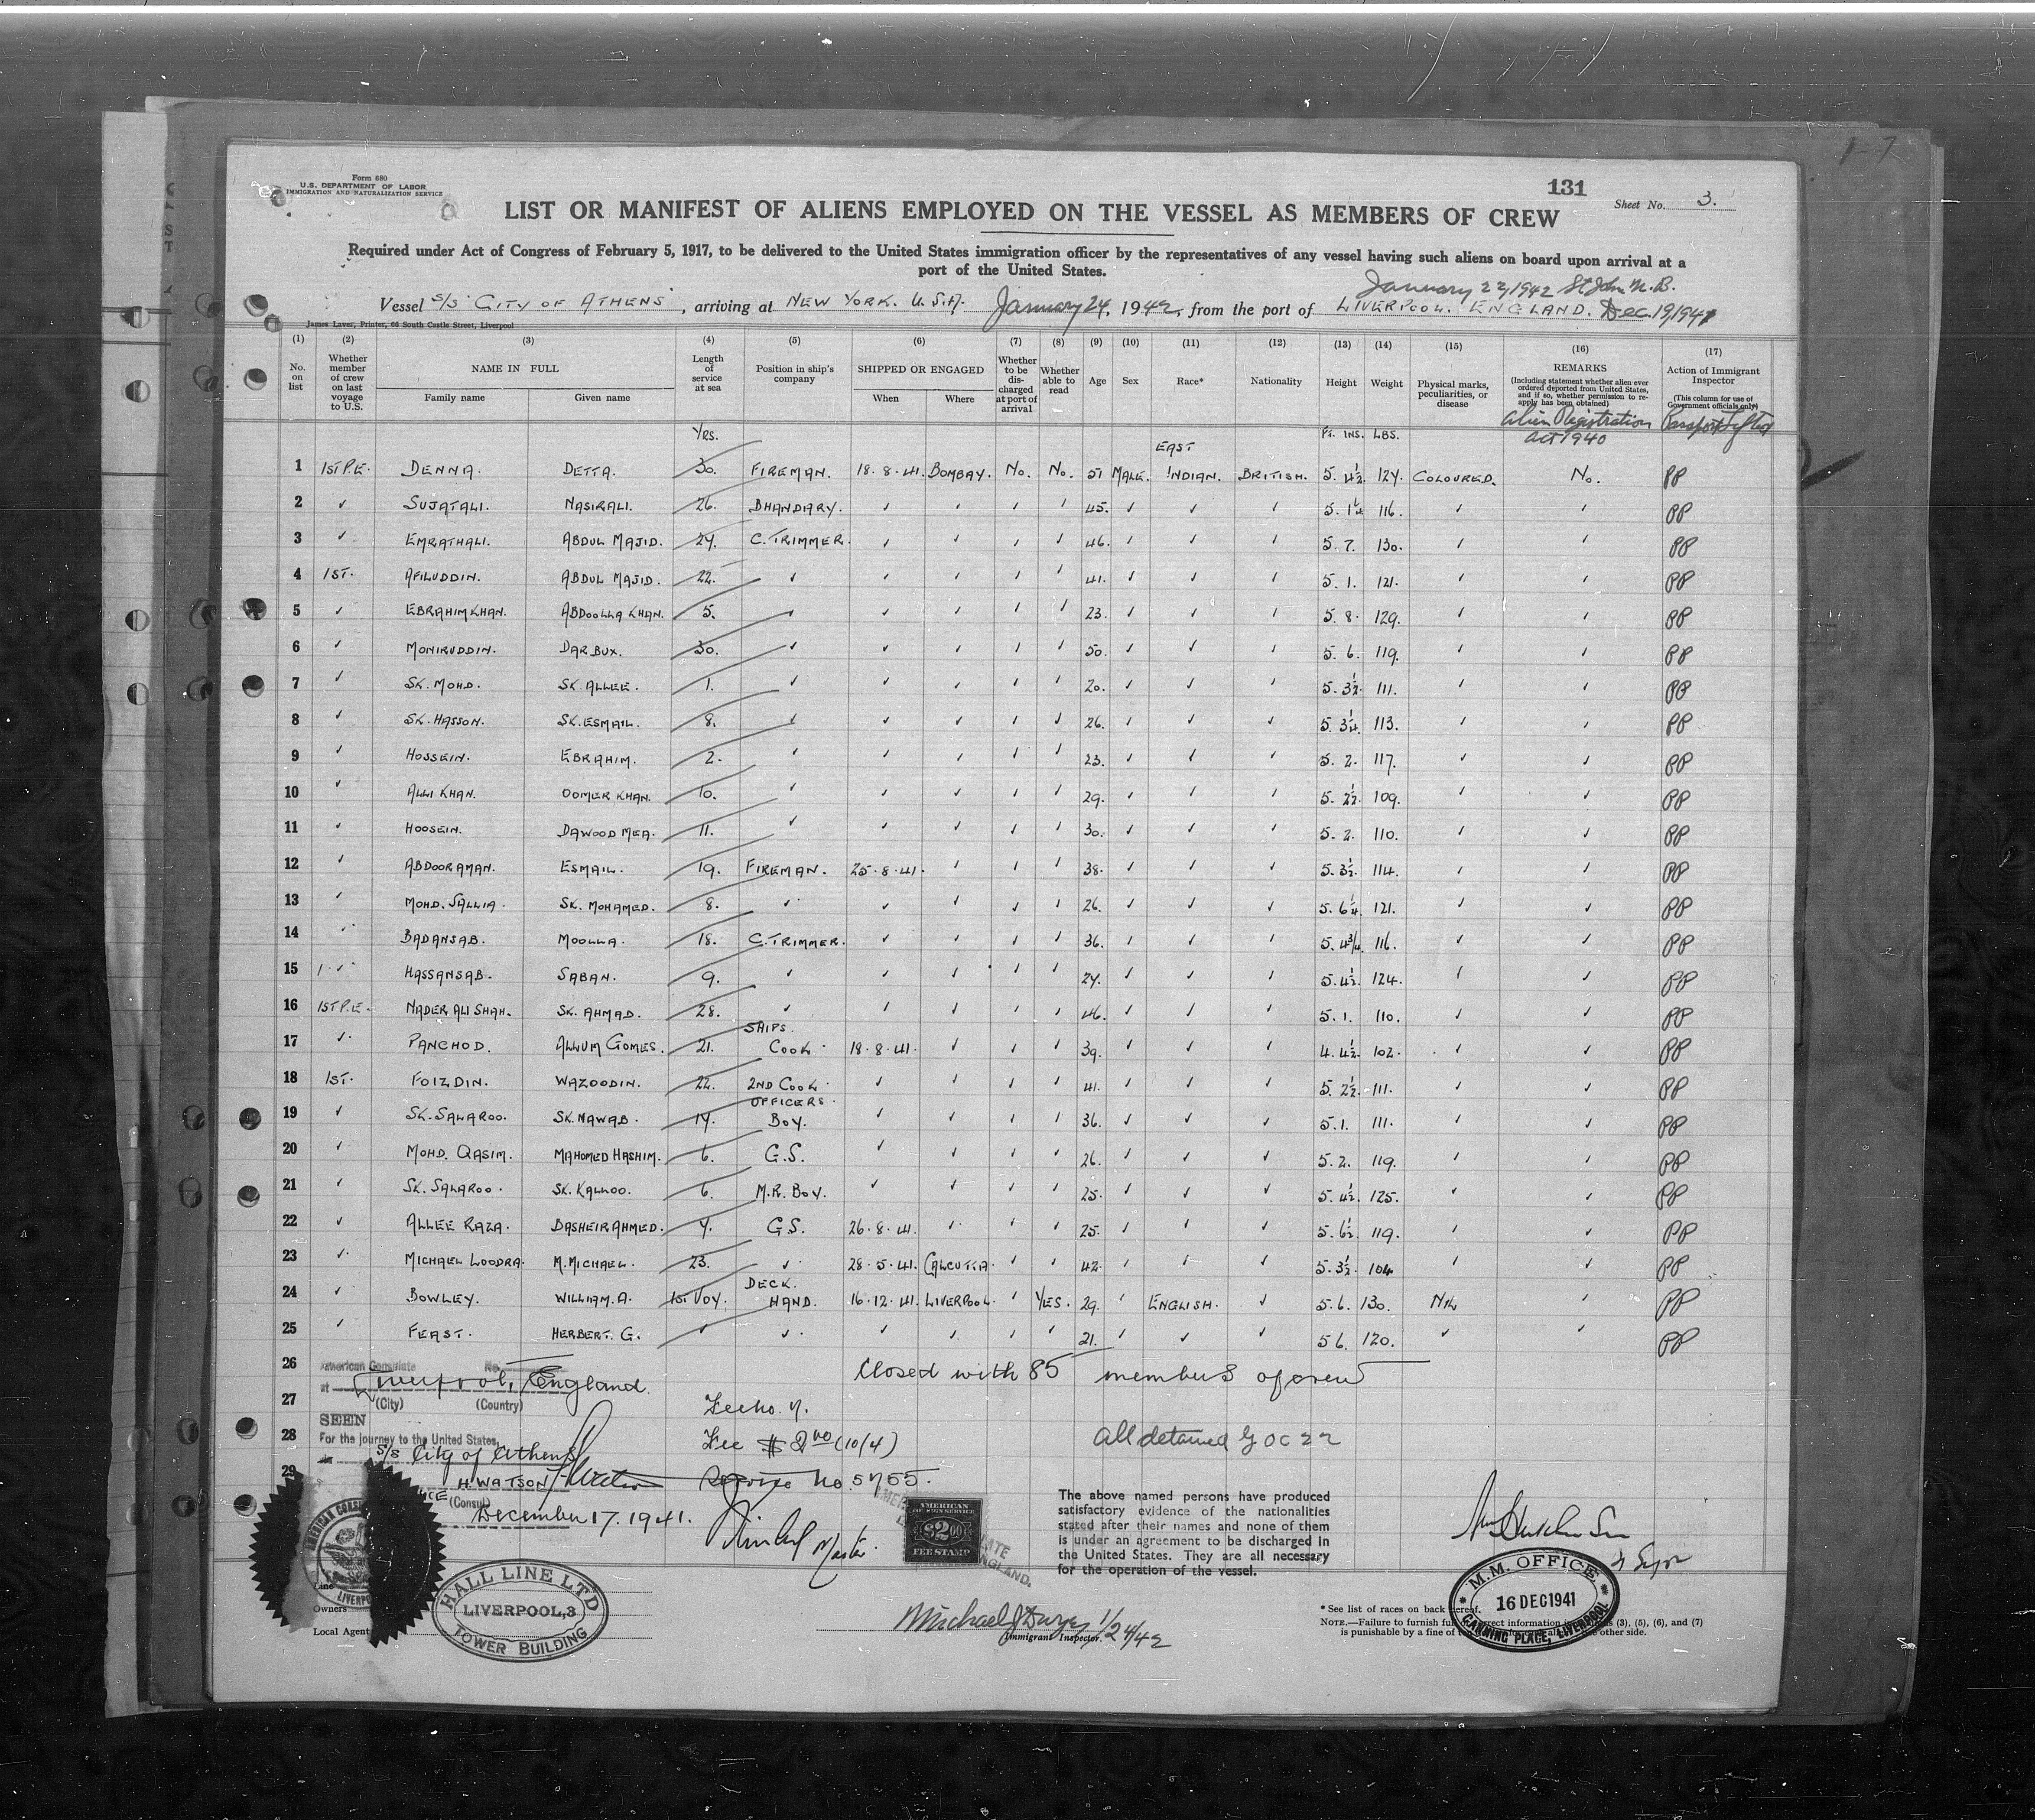 1-7
Form 680
U.S. DEPARTMENT OF LABOR
IMMIGRATION AND NATURALIZATION SERVICE
131
Sheet No. 3.
LIST OR MANIFEST OF ALIENS EMPLOYED ON THE VESSEL AS MEMBERS OF CREW
Required under Act of Congress of February 5, 1917, to be delivered to the United States immigration officer by the representatives of any vessel having such aliens on board upon arrival at a
port of the United States.
January 22, 1942 St John N.B.
Vessel S/S "CITY OF ATHENS", arriving at NEW YORK. U.S.A. January 24, 1942, from the port of LIVERPOOL. ENGLAND. Dec. 19, 1941
James Laver, Printer, 66 South Castle Street, Liverpool
(1) (2) (3) (4) (5) (6) (7) (8) (9) (10) (11) (12) (13) (14) (15) (16) (17)
No. on list Whether member of crew on last voyage to U.S. NAME IN FULL Family name Given name Length of service at sea Position in ship's company SHIPPED OR ENGAGED When Where Whether to be discharged at port of arrival Whether able to read Age Sex Race* Nationality Height Weight Physical marks, peculiarities, or disease REMARKS (Including statement whether alien ever ordered deported from United States, and if so, whether permission to re-apply has been obtained) Action of Immigrant Inspector (This column for use of Government officials only)
Alien Registration Act 1940 Passport
YRS. FT. INS. LBS.
EAST
1 1ST P.E. DENNA. DETTA. 30. FIREMAN. 18.8.41. BOMBAY. No. No. 51 MALE. INDIAN. BRITISH. 5. 4½ 124. COLOURED. No. PP
2 ✓ SUJATALI. NASIRALI. 26. BHANDARY. ✓ ✓ ✓ ✓ 45. ✓ ✓ ✓ 5. 1¼ 116. ✓ ✓ PP
3 ✓ EMRATHALI. ABDUL MAJID. 24. C. TRIMMER. ✓ ✓ ✓ ✓ 46. ✓ ✓ ✓ 5. 7. 130. ✓ ✓ PP
4 1ST. AFILUDDIN. ABDUL MAJID. 22. ✓ ✓ ✓ ✓ ✓ 41. ✓ ✓ ✓ 5. 1. 121. ✓ ✓ PP
5 ✓ EBRAHIM KHAN. ABDOOLLA KHAN. 5. ✓ ✓ ✓ ✓ ✓ 23. ✓ ✓ ✓ 5. 8. 129. ✓ ✓ PP
6 ✓ MONIRUDDIN. DARBUX. 30. ✓ ✓ ✓ ✓ ✓ 50. ✓ ✓ ✓ 5. 6. 119. ✓ ✓ PP
7 ✓ SK. MOHD. SK. ALLEE. 1. ✓ ✓ ✓ ✓ ✓ 20. ✓ ✓ ✓ 5. 3½ 111. ✓ ✓ PP
8 ✓ SK. HASSON. SK. ESMAIL. 8. ✓ ✓ ✓ ✓ ✓ 26. ✓ ✓ ✓ 5. 3¼ 113. ✓ ✓ PP
9 ✓ HOSSEIN. EBRAHIM. 2. ✓ ✓ ✓ ✓ ✓ 23. ✓ ✓ ✓ 5. 2. 117. ✓ ✓ PP
10 ✓ ALLI KHAN. OOMER KHAN. 10. ✓ ✓ ✓ ✓ ✓ 29. ✓ ✓ ✓ 5. 2½ 109. ✓ ✓ PP
11 ✓ HOOSEIN. DAWOOD MEA. 11. ✓ ✓ ✓ ✓ ✓ 30. ✓ ✓ ✓ 5. 2. 110. ✓ ✓ PP
12 ✓ ABDOORAMAN. ESMAIL. 19. FIREMAN. 25.8.41. ✓ ✓ ✓ 38. ✓ ✓ ✓ 5. 3½ 114. ✓ ✓ PP
13 ✓ MOHD. SALLIA. SK. MOHAMED. 8. ✓ ✓ ✓ ✓ ✓ 26. ✓ ✓ ✓ 5. 6¼ 121. ✓ ✓ PP
14 ✓ BADANSAB. MOOLLA. 18. C. TRIMMER. ✓ ✓ ✓ ✓ 36. ✓ ✓ ✓ 5. 4¾ 116. ✓ ✓ PP
15 ✓ HASSANSAB. SABAN. 9. ✓ ✓ ✓ ✓ ✓ 24. ✓ ✓ ✓ 5. 4½ 124. ✓ ✓ PP
16 1ST P.E. NADER ALI SHAH. SK. AHMAD. 28. ✓ ✓ ✓ ✓ ✓ 46. ✓ ✓ ✓ 5. 1. 110. ✓ ✓ PP
17 ✓ PANCHOD. ALLUM GOMES. 21. SHIPS COOK 18.8.41. ✓ ✓ ✓ 39. ✓ ✓ ✓ 4. 4½ 102. ✓ ✓ PP
18 1ST. FOIZDIN. WAZOODIN. 22. 2ND COOK ✓ ✓ ✓ ✓ 41. ✓ ✓ ✓ 5. 2½ 111. ✓ ✓ PP
19 ✓ SK. SALAROO. SK. NAWAB. 14. OFFICERS BOY. ✓ ✓ ✓ ✓ 36. ✓ ✓ ✓ 5. 1. 111. ✓ ✓ PP
20 ✓ MOHD. QASIM. MAHOMED HASHIM. 6. G.S. ✓ ✓ ✓ ✓ 26. ✓ ✓ ✓ 5. 2. 119. ✓ ✓ PP
21 ✓ SK. SALAROO. SK. KALLOO. 6. M.R. BOY. ✓ ✓ ✓ ✓ 25. ✓ ✓ ✓ 5. 4½ 125. ✓ ✓ PP
22 ✓ ALLEE RAZA. BASHEIR AHMED. 4. G.S. 26.8.41. ✓ ✓ ✓ 25. ✓ ✓ ✓ 5. 6½ 119. ✓ ✓ PP
23 ✓ MICHAEL LOODRA. M. MICHAEL. 23. ✓ 28.5.41. CALCUTTA. ✓ ✓ 42. ✓ ✓ ✓ 5. 3½ 104 ✓ ✓ PP
24 ✓ BOWLEY. WILLIAM. A. 1ST VOY. DECK HAND. 16.12.41. LIVERPOOL. ✓ YES. 29. ✓ ENGLISH. ✓ 5. 6. 130. NIL ✓ PP
25 ✓ FEAST. HERBERT. G. ✓ ✓ ✓ ✓ ✓ ✓ 21. ✓ ✓ ✓ 5 6. 120. ✓ ✓ PP
26 American Consulate No. Closed with 85 members of crew
at Liverpool, England
27 (City) (Country)
SEEN
28 For the journey to the United States, Fee $2.00 (10/4) All detained
S/S City of Athens
29 H. WATSON Service No. 5755.
(Consul)
December 17. 1941.
Master.
AMERICAN
FOREIGN SERVICE
$2.00
FEE STAMP
The above named persons have produced
satisfactory evidence of the nationalities
stated after their names and none of them
is under an agreement to be discharged in
the United States. They are all necessary
for the operation of the vessel.
Line
Owners
Local Agent
HALL LINE LTD
LIVERPOOL, 3
TOWER BUILDING
Michael J Dwyer 1/24/42
Immigrant Inspector.
M.M. OFFICE
16 DEC 1941
CANNING PLACE, LIVERPOOL
* See list of races on back hereof.
NOTE.—Failure to furnish full correct information (3), (5), (6), and (7)
is punishable by a fine of other side.